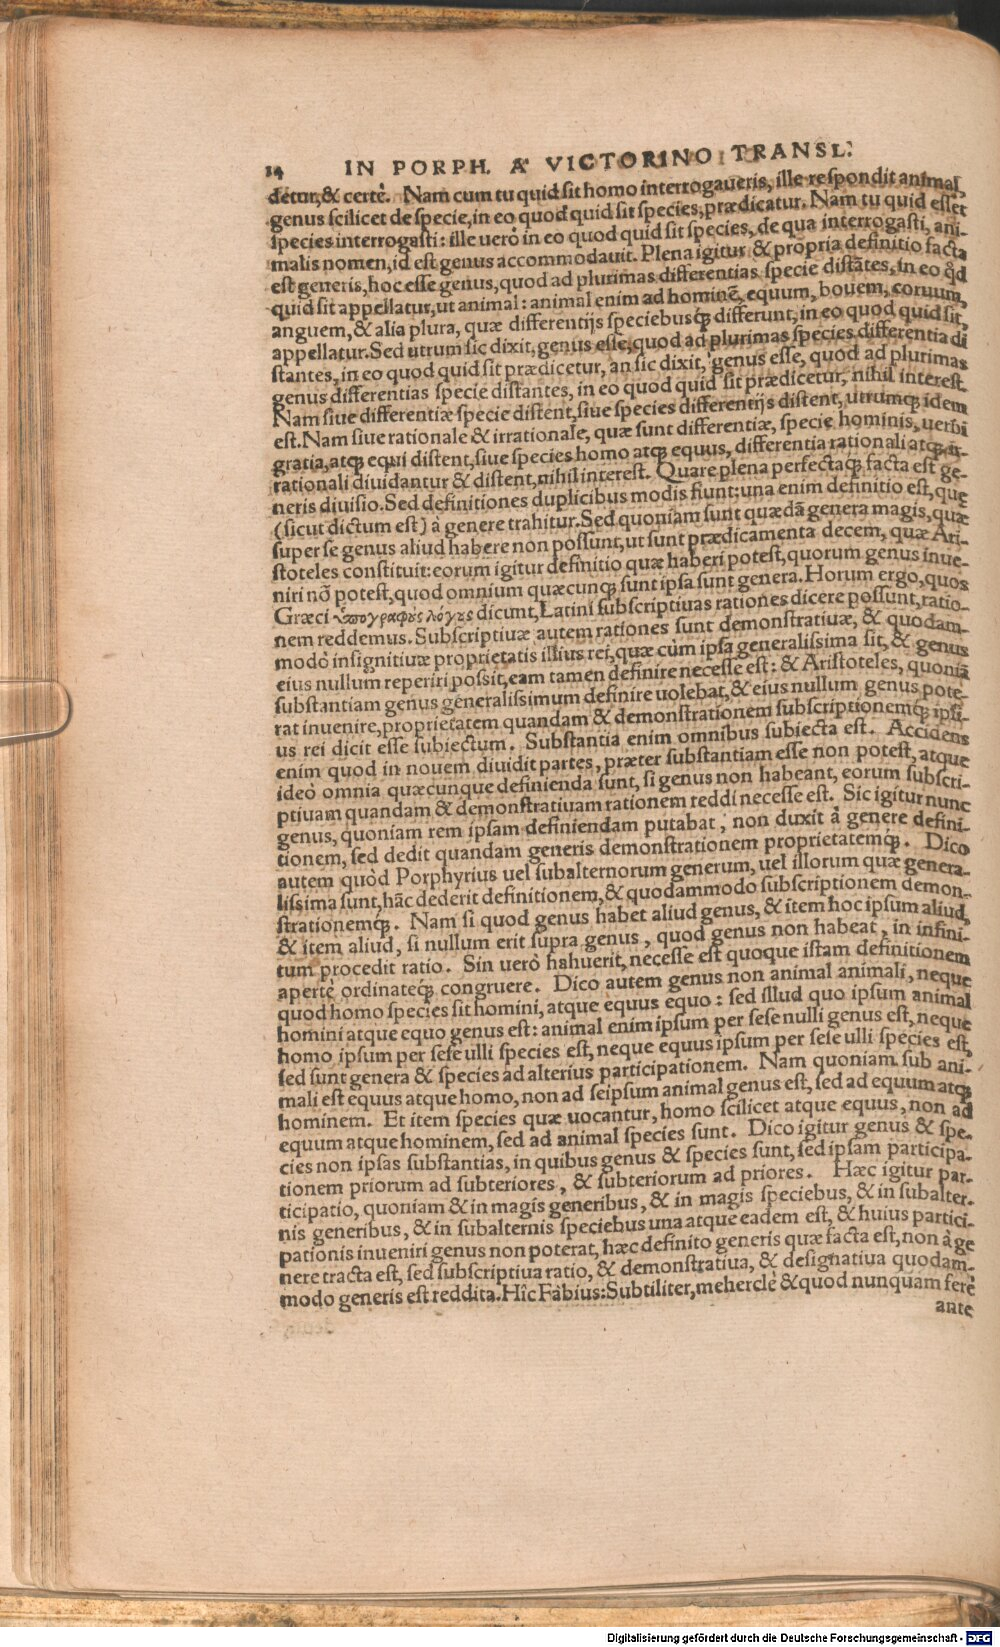 14 IN PORPH. A VICTORINO TRANSL.
detur, & certè. Nam cum tu quid sit homo interrogaueris, ille respondit animal,
genus scilicet de specie, in eo quod quid sit species, prædicatur. Nam tu quid esset
species interrogasti: ille uerò in eo quod quid sit species, de qua interrogasti, ani-
malis nomen, id est genus accommodauit. Plena igitur & propria definitio facta
est generis, hoc esse genus, quod ad plurimas differentias specie distātes, in eo qd̄
quid sit appellatur, ut animal: animal enim ad hominē, equum, bouem, coruum,
anguem, & alia plura, quæ differentijs speciebusq́; differunt, in eo quod quid sit,
appellatur. Sed utrum sic dixit, genus esse, quod ad plurimas species differentia di
stantes, in eo quod quid sit prædicetur, an sic dixit, genus esse, quod ad plurimas
genus differentias specie distantes, in eo quod quid sit prædicetur, nihil interest.
Nam siue differentiæ specie distent, siue species differentijs distent, utrumq; idem
est. Nam siue rationale & irrationale, quæ sunt differentiæ, specie hominis, uerbi
gratia, atq; equi distent, siue species homo atq; equus, differentia rationali atq; ir-
rationali diuidantur & distent, nihil interest. Quare plena perfectaq; facta est ge-
neris diuisio. Sed definitiones duplicibus modis fiunt: una enim definitio est, quę
(sicut dictum est) à genere trahitur. Sed quoniam sunt quædā genera magis, quæ
super se genus aliud habere non possunt, ut sunt prædicamenta decem, quæ Ari-
stoteles constituit: eorum igitur definitio quæ haberi potest, quorum genus inue-
niri nō potest, quod omnium quæcunq; sunt ipsa sunt genera. Horum ergo, quos
Græci ὑπογραφοὺς λόγους dicunt, Latini subscriptiuas rationes dicere possunt, ratio-
nem reddemus. Subscriptiuæ autem rationes sunt demonstratiuæ, & quodam-
modò insignitiuæ proprietatis illius rei, quæ cùm ipsa generalissima sit, & genus
eius nullum reperiri possit, eam tamen definire necesse est: & Aristoteles, quoniā
substantiam genus generalissimum definire uolebat, & eius nullum genus pote-
rat inuenire, proprietatem quandam & demonstrationem subscriptionemq́; ipsi-
us rei dicit esse subiectum. Substantia enim omnibus subiecta est. Accidens
enim quod in nouem diuidit partes, præter substantiam esse non potest, atque
ideò omnia quæcunque definienda sunt, si genus non habeant, eorum subscri-
ptiuam quandam & demonstratiuam rationem reddi necesse est. Sic igitur nunc
genus, quoniam rem ipsam definiendam putabat, non duxit à genere defini-
tionem, sed dedit quandam generis demonstrationem proprietatemq́;. Dico
autem quòd Porphyrius uel subalternorum generum, uel illorum quæ genera-
lissima sunt, hāc dederit definitionem, & quodammodo subscriptionem demon-
strationemq́;. Nam si quod genus habet aliud genus, & item hoc ipsum aliud,
& item aliud, si nullum erit supra genus, quod genus non habeat, in infini-
tum procedit ratio. Sin uerò habuerit, necesse est quoque istam definitionem
apertè ordinateq́; congruere. Dico autem genus non animal animali, neque
quod homo species sit homini, atque equus equo: sed illud quo ipsum animal
homini atque equo genus est: animal enim ipsum per sese nulli genus est, neque
homo ipsum per sese ulli species est, neque equus ipsum per sese ulli species est,
sed sunt genera & species ad alterius participationem. Nam quoniam sub ani-
mali est equus atque homo, non ad seipsum animal genus est, sed ad equum atq;
hominem. Et item species quæ uocantur, homo scilicet atque equus, non ad
equum atque hominem, sed ad animal species sunt. Dico igitur genus & spe-
cies non ipsas substantias, in quibus genus & species sunt, sed ipsam participa-
tionem priorum ad subteriores, & subteriorum ad priores. Hæc igitur par-
ticipatio, quoniam & in magis generibus, & in magis speciebus, & in subalter-
nis generibus, & in subalternis speciebus una atque eadem est, & huius partici-
pationis inueniri genus non poterat, hæc definito generis quæ facta est, non à ge
nere tracta est, sed subscriptiua ratio, & demonstratiua, & designatiua quodam-
modo generis est reddita. Hîc Fabius: Subtiliter, meherclè & quod nunquam ferè
ante
Digitalisierung gefördert durch die Deutsche Forschungsgemeinschaft - DFG